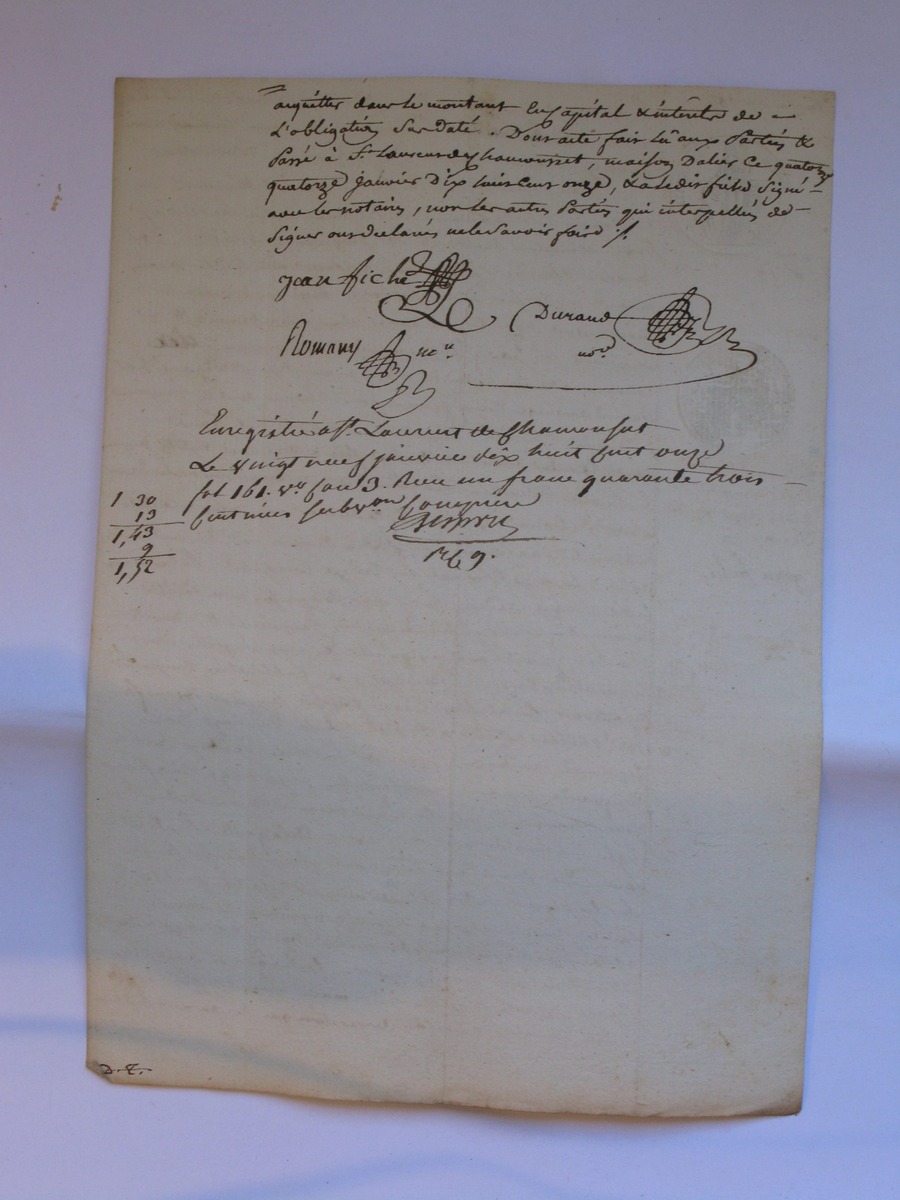 acquitter dans le montant En capital & intérêts de
L'obligation Sus datée. Dont acte fait lû aux Parties &
Passé à St. Laurens de Chamousset, maison Dalier Ce quatorze
quatorze Janvier Dix huit Cent onze, & a Ledit fiché Signé
avec les notaires, non les autres Parties qui interpellés de
Signer ont déclarés ne le Savoir faire ./.
jean fiché
Durand
nore
Romany nre
Enregistré a St. Laurent de Chamousset
Le vingt neuf janvier dix huit cent onze
fol 161. vo Case 3. Reçu un franc quarante trois
Centimes subvon Comprise
1 30
13
1,43
9
1,52
1769.
D.T.